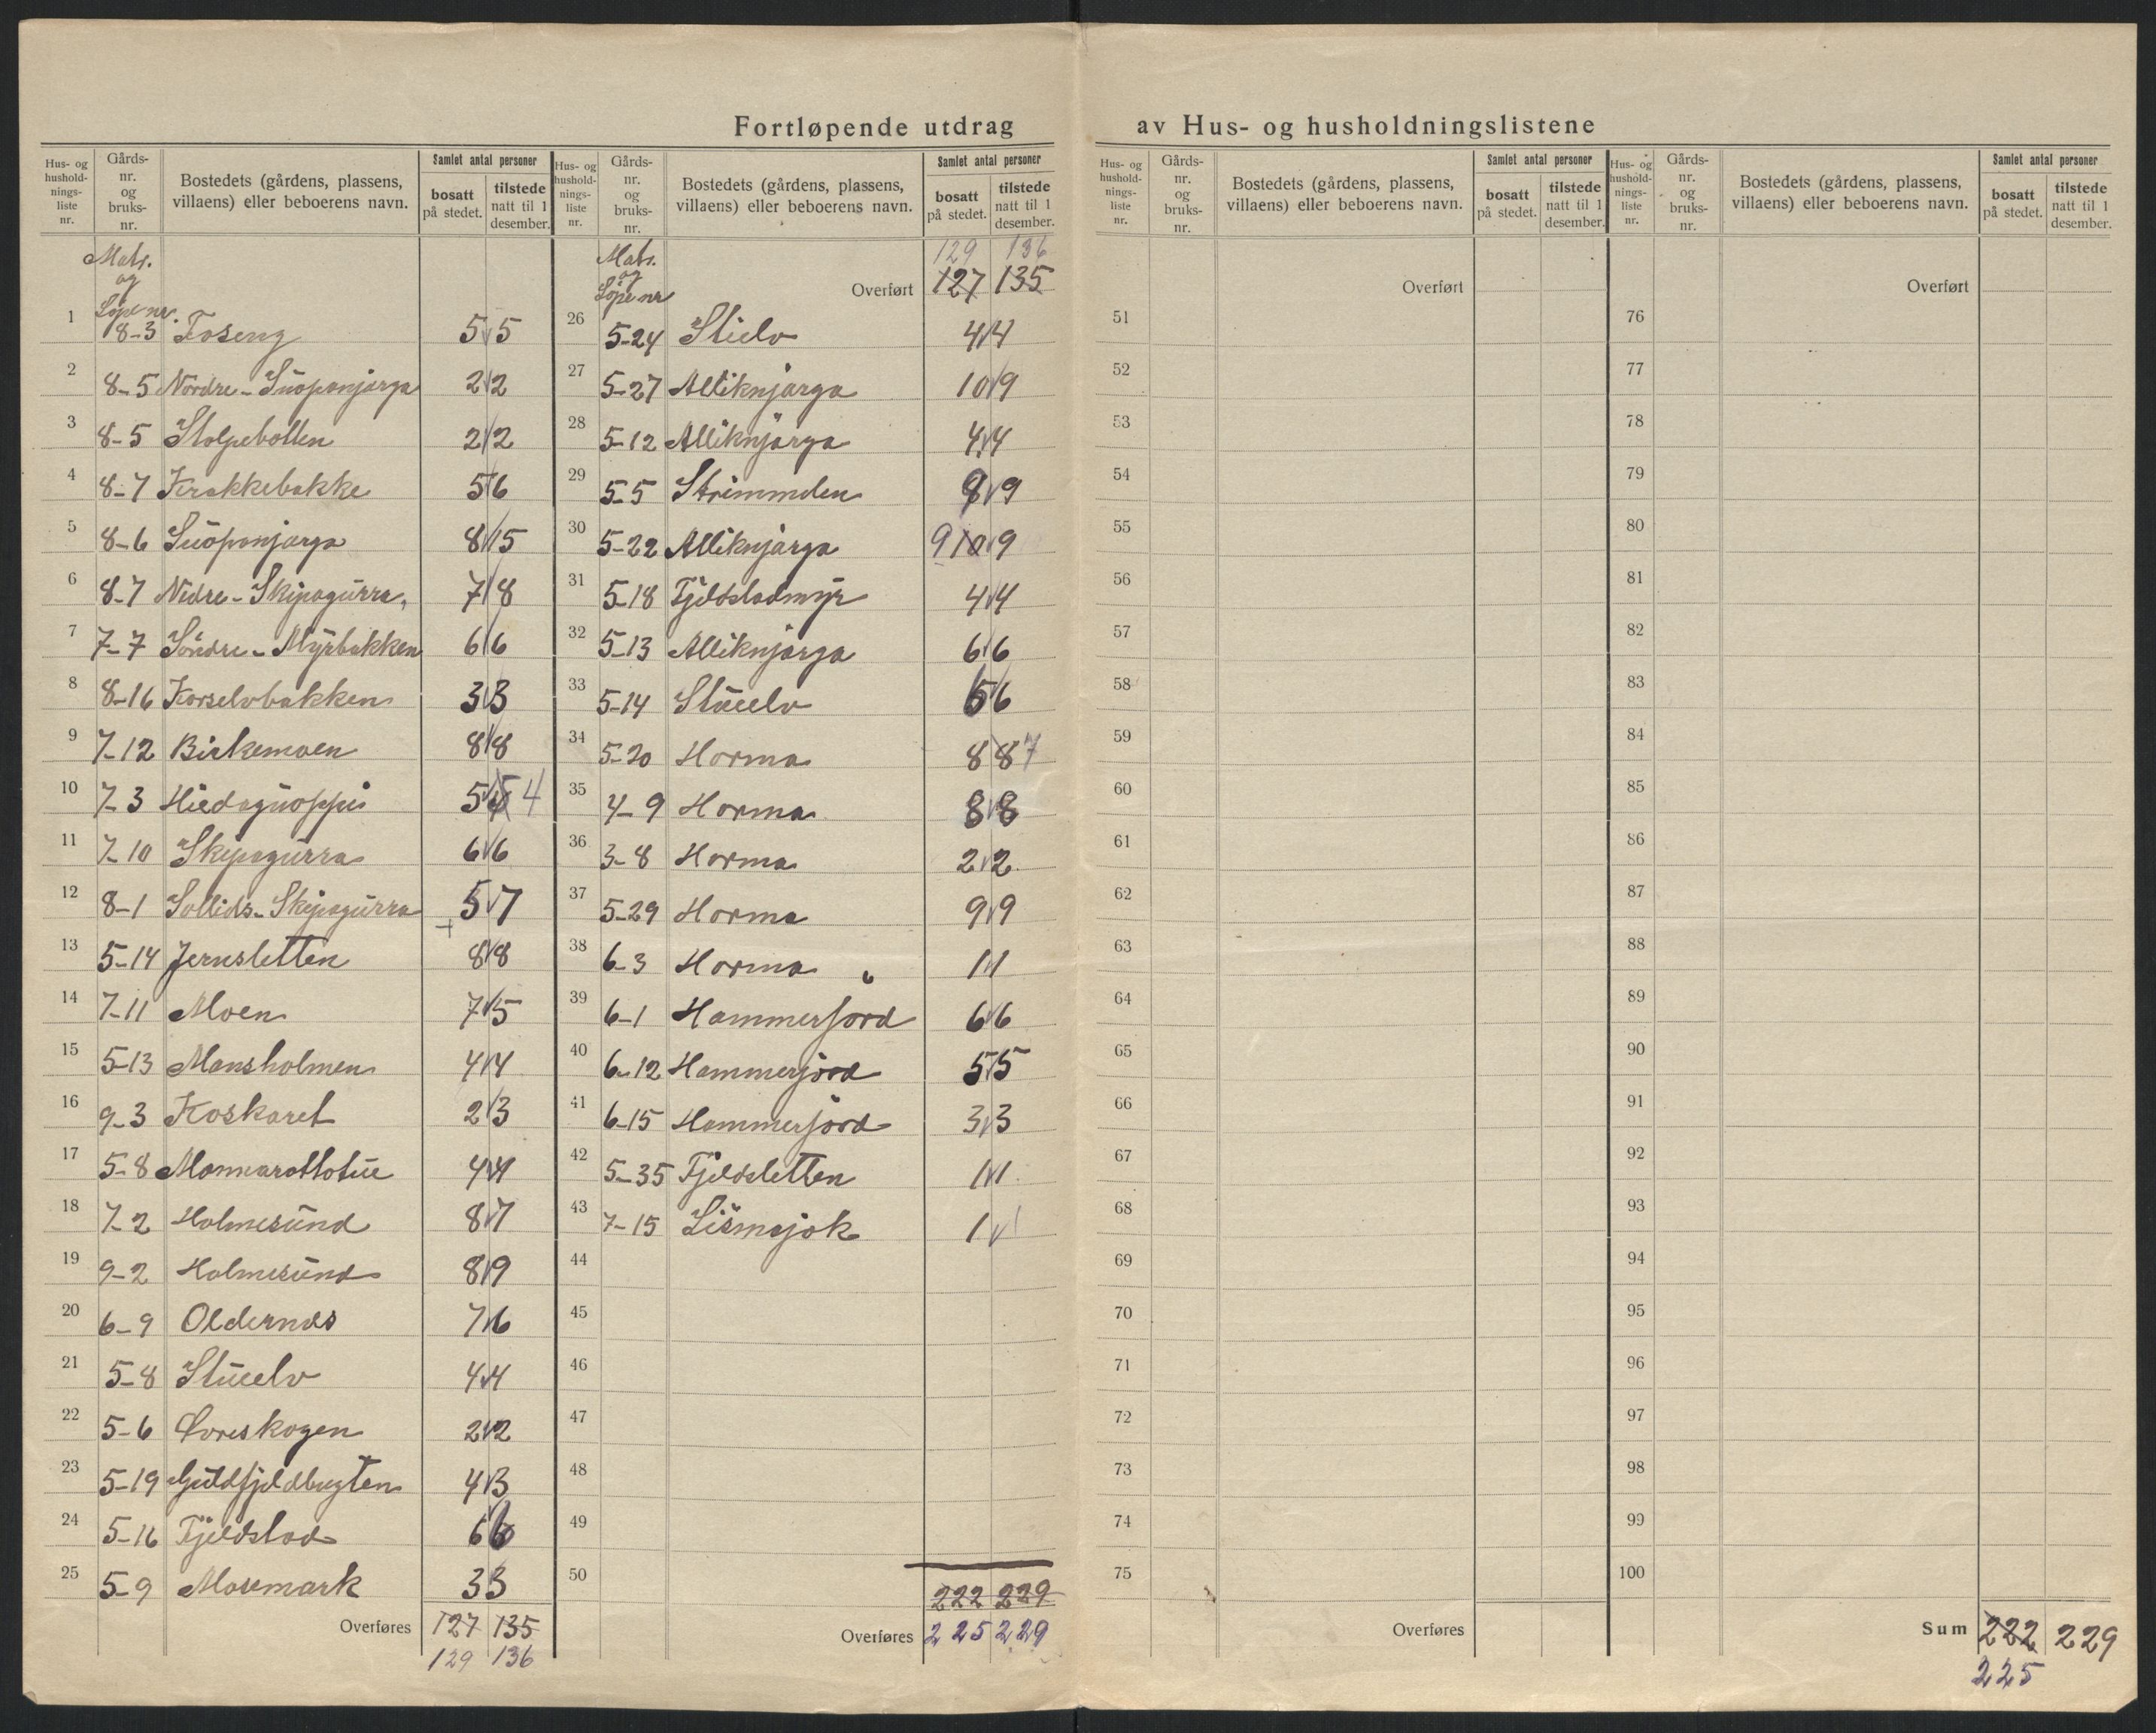 Fortløpende utdrag av Hus- og husholdningslistene
Hus- og hushold- nings- liste nr.
Gårds- nr. og bruks- nr.
Bostedets (gårdens, plassens, villaens) eller beboerens navn.
Samlet antal personer
bosatt på stedet.
tilstede natt til 1 desember.
Matr. og Løpe nr.
1 8-3 Foseng 5 5
2 8-5 Nordre-Suopanjarga 2 2
3 8-5 Stolpebotten 2 2
4 8-7 Krakkebakke 5 6
5 8-6 Suopanjarga 8 15
6 8-7 Nedre-Skipagurra 7 8
7 7-7 Söndre-Myrbakken 6 6
8 8-16 Korselvbakken 3 3
9 7-12 Birkemoen 8 8
10 7-3 Hiedaguoppi 5 4
11 7-10 Skipagurra 6 6
12 8-1 Sollids-Skipagurra 5 7
13 5-14 Jernsletten 8 8
14 7-11 Moen 7 5
15 5-13 Mansholmen 4 4
16 9-3 Koskaret 2 3
17 5-8 4 4
18 7-2 Holmesund 8 7
19 9-2 Holmesund 8 9
20 6-9 Oldernes 7 6
21 5-8 Stuelv 4 4
22 5-6 Оreskogen 2 2
23 5-19 Guldfjeldbugten 4 3
24 5-16 Fjeldstad 6 6
25 5-9 Mosemark 3 3
Overføres 127 135
129 136
Hus- og hushold- nings- liste nr.
Gårds- nr. og bruks- nr.
Bostedets (gårdens, plassens, villaens) eller beboerens navn.
Samlet antal personer
bosatt på stedet.
tilstede natt til 1 desember.
Matr. og Løpe nr
129 136
Overført 127 135
26 5-24 Stuelv 4 4
27 5-27 Alliknjarga 10 9
28 5-12 Alliknjarga 4 4
29 5-5 Strimmelen 9 9
30 5-22 Alliknjarga 9 10 9
31 5-18 Fjeldstadmyr 4 4
32 5-13 Alliknjarga 6 6
33 5-14 Stuelv 6 6
34 5-20 Horma 8 8 7
35 4-9 Horma 8 8
36 3-8 Horma 2 2
37 5-29 Horma 9 9
38 6-3 Horma 1 1
39 6-1 Hammerjord 6 6
40 6-12 Hammerjord 5 5
41 6-15 Hammerjord 3 3
42 5-35 Fjeldsletten 1 1
43 7-15 Lismajok 1 1
44
45
46
47
48
49
50
222 229
Overføres 225 229
Hus- og hushold- nings- liste nr.
Gårds- nr. og bruks- nr.
Bostedets (gårdens, plassens, villaens) eller beboerens navn.
Samlet antal personer
bosatt på stedet.
tilstede natt til 1 desember.
Overført
51
52
53
54
55
56
57
58
59
60
61
62
63
64
65
66
67
68
69
70
71
72
73
74
75
Overføres
Hus- og hushold- nings- liste nr.
Gårds- nr. og bruks- nr.
Bostedets (gårdens, plassens, villaens) eller beboerens navn.
Samlet antal personer
bosatt på stedet.
tilstede natt til 1 desember.
Overført
76
77
78
79
80
81
82
83
84
85
86
87
88
89
90
91
92
93
94
95
96
97
98
99
100
Sum 222 229
225